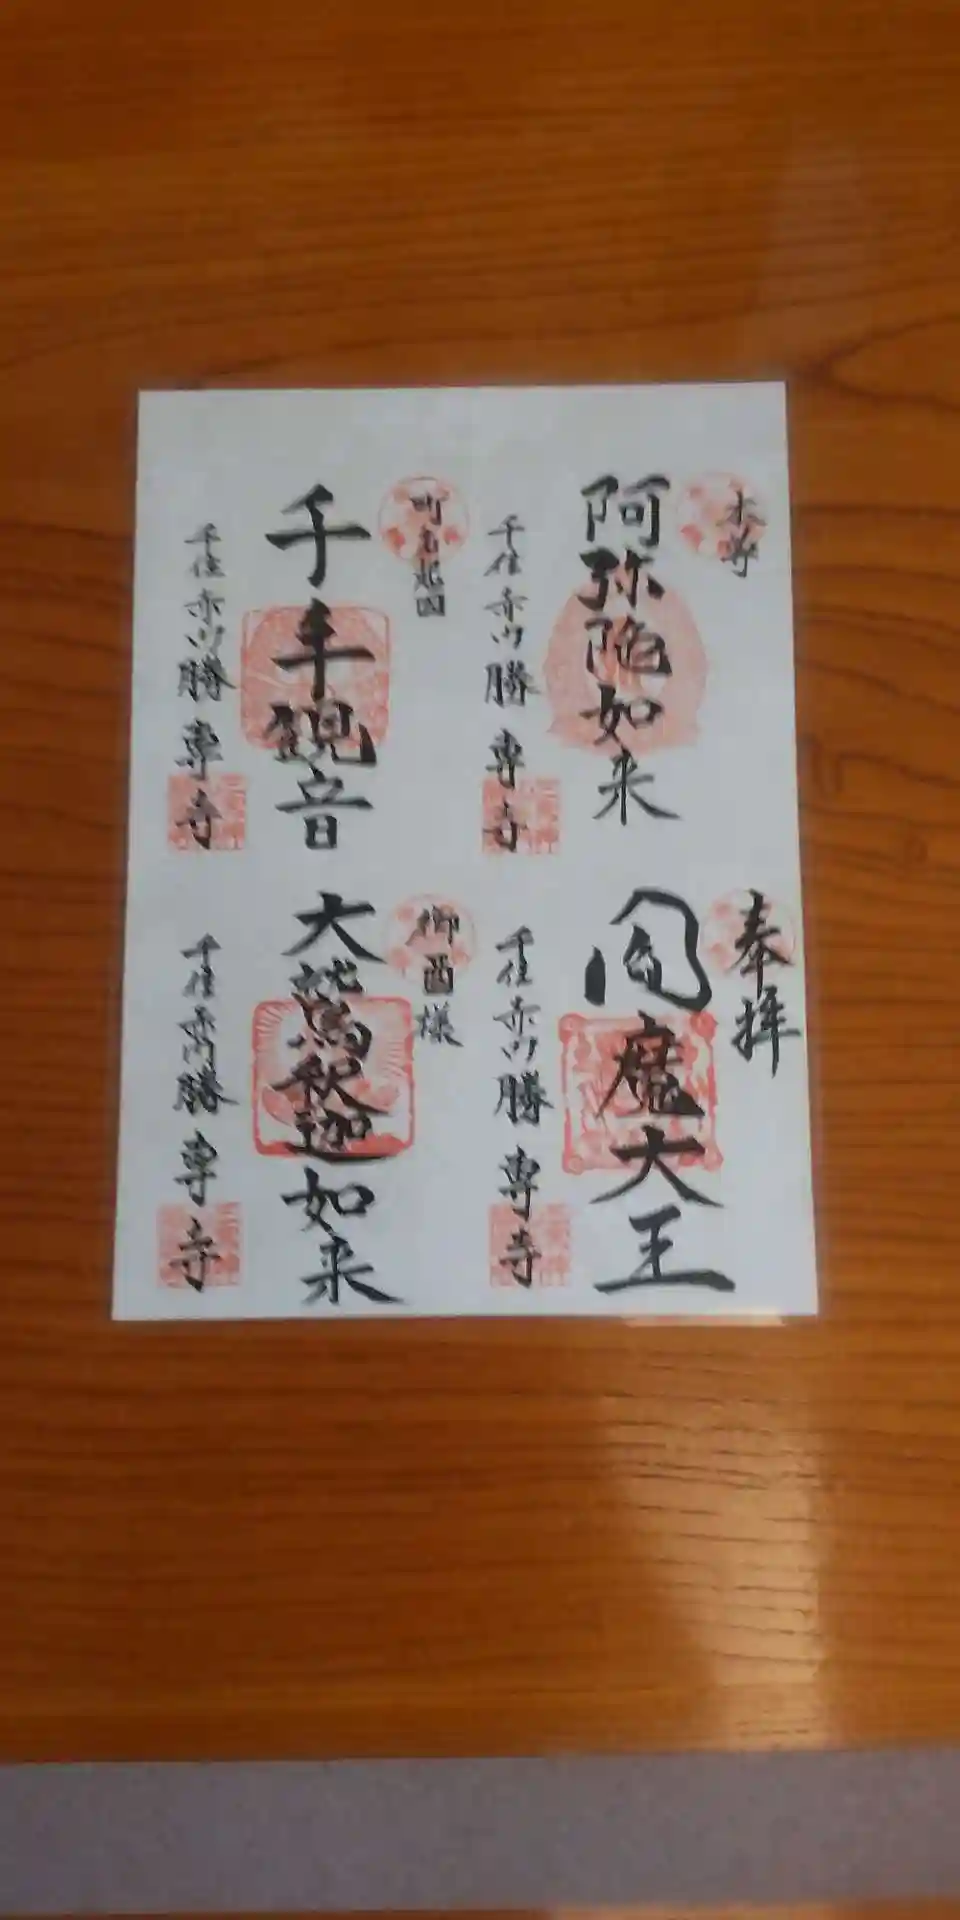 本尊
阿弥陀如来
千住赤門勝専寺
町名起因
千手観音
千住赤門勝専寺
奉拝
閻魔大王
千住赤門勝専寺
御酉様
大鷲釈迦如来
千住赤門勝専寺